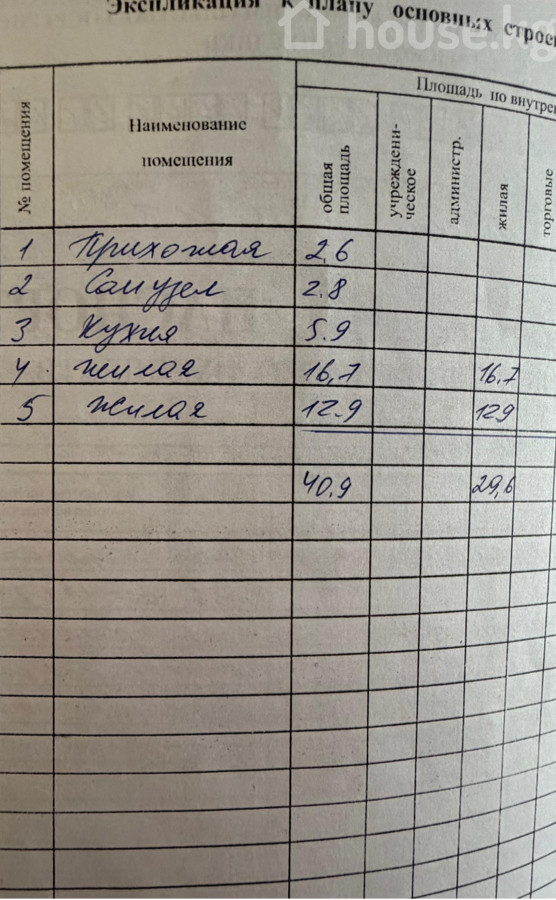 Экспликация к плану основных строе
house.kg
№ помещения
Наименование
помещения
Площадь по внутрен
общая
площадь
учреждени-
ческое
администр.
жилая
торговые
1 Прихожая 2,6
2 Сан узел 2.8
3 Кухня 5.9
4. жилая 16,7 16.7
5 Жилая 12.9 12.9
40.9 29,6